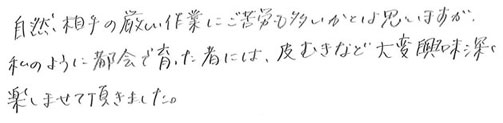 自然、相手の厳しい作業にご苦労も多いかとは思いますが、
私のように都会で育った者には、皮むきなど大変興味深く
楽しませて頂きました。